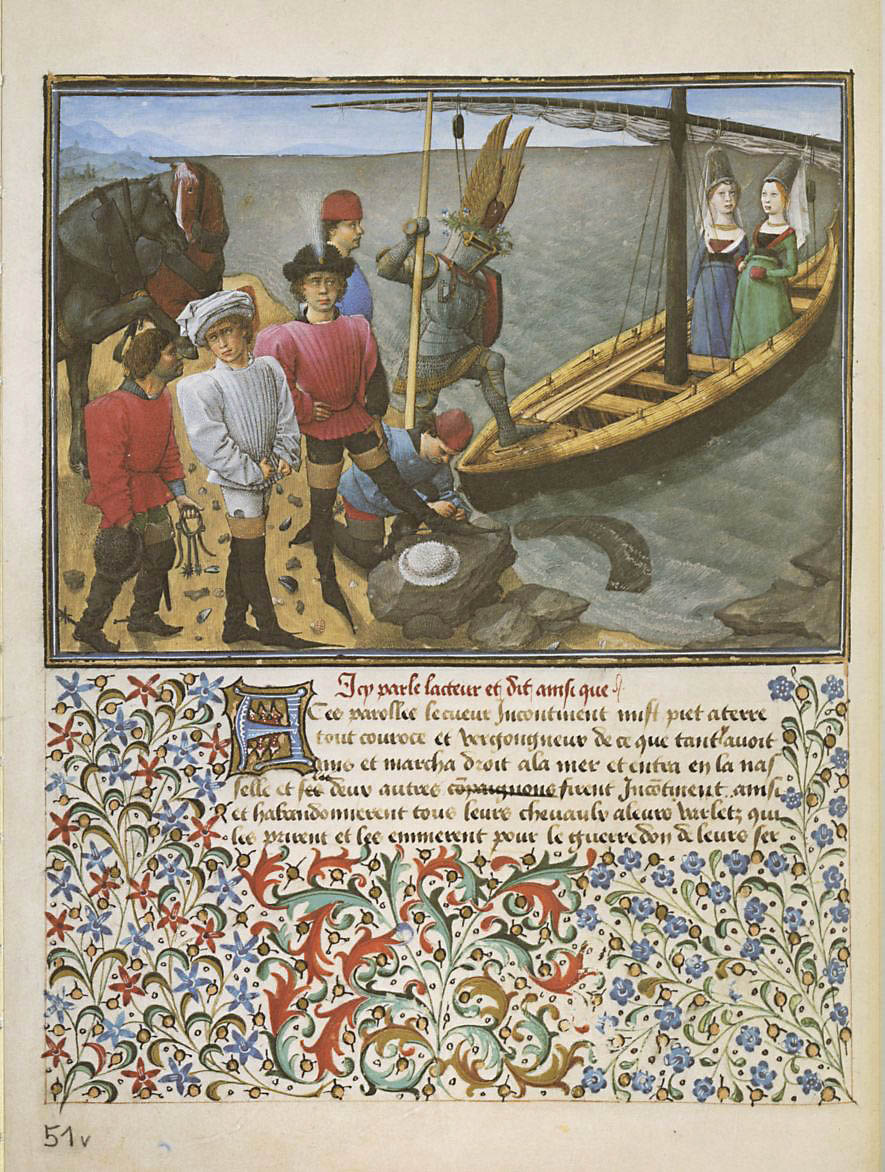 Icy parle lacteur et dit ainsi que
A Ces parolles le cueur Incontinent mist piet a terre
tout couroce et vergongneux de ce que tant avoit
mis et marcha droit a la mer et entra en la nas
selle et ses deux autres compaignons firent Incontinent ainsi
et habandonnerent tous leurs chevaulx a leurs varletz qui
les prirent et les emmerent pour le guerredon de leurs ser
51v